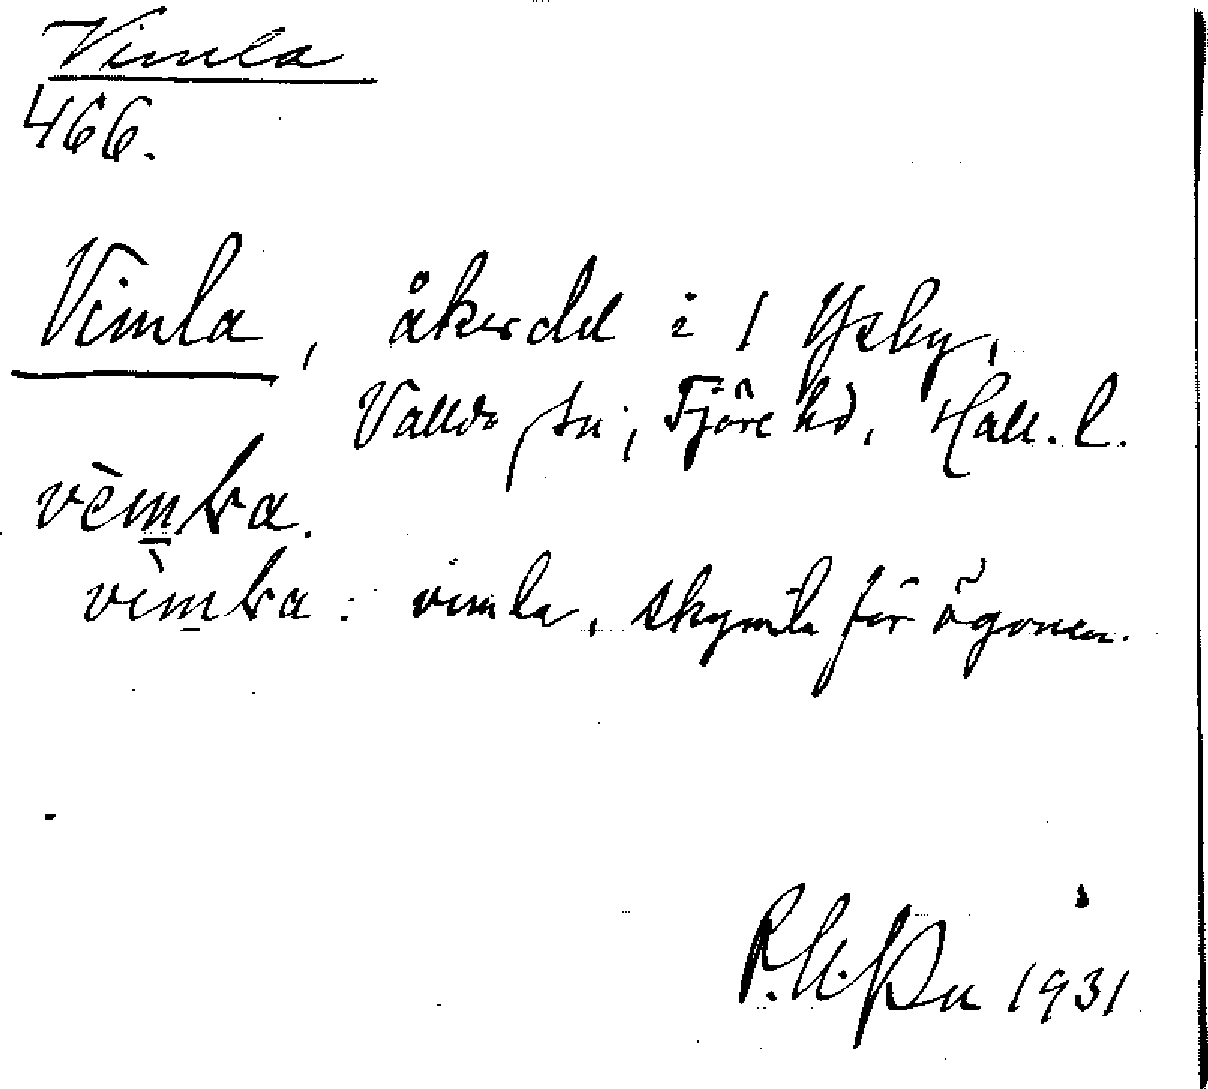 Vimla
466.
Vimla, åkerdel i 1 Ysby,
Vallda sn, Fjäre hd, Hall. l.
vèmɫa.
vìmɫa: vimla, skymla för ögonen.
1931